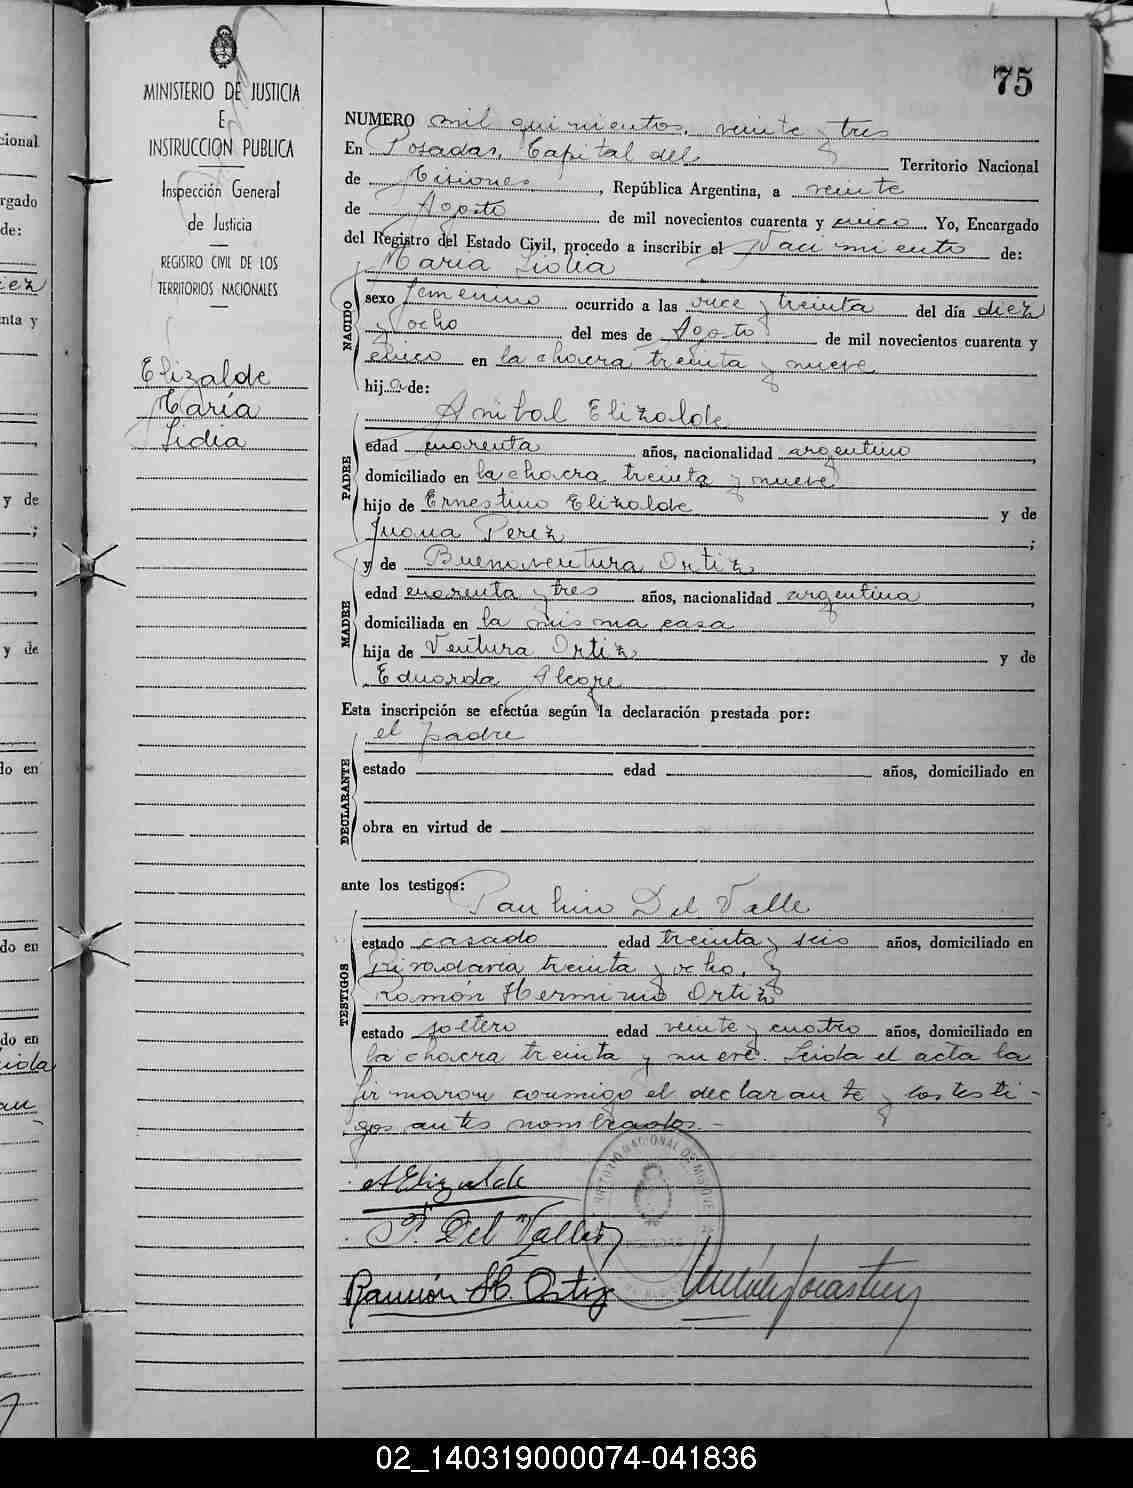 75
MINISTERIO DE JUSTICIA
E
INSTRUCCION PUBLICA
Inspección General
de Justicia
REGISTRO CIVIL DE LOS
TERRITORIOS NACIONALES
Elizalde
María
Lidia
NUMERO mil quinientos, veinte y tres
En Posadas, Capital del Territorio Nacional
de Misiones, República Argentina, a veinte
de Agosto de mil novecientos cuarenta y cinco. Yo, Encargado
del Registro del Estado Civil, procedo a inscribir el Nacimiento de:
NACIDO
María Lidia
sexo femenino ocurrido a las once y treinta del día diez
y ocho del mes de Agosto de mil novecientos cuarenta y
cinco en la chacra treinta y nueve
hija de:
PADRE
Anibal Elizalde
edad cuarenta años, nacionalidad argentino,
domiciliado en la chacra treinta y nueve
hijo de Ernestino Elizalde y de
Juana Perez;
MADRE
y de Buenaventura Ortiz
edad cuarenta y tres años, nacionalidad argentina,
domiciliada en la misma casa
hija de Ventura Ortiz y de
Eduarda Alegre
Esta inscripción se efectúa según la declaración prestada por:
DECLARANTE
el padre
estado edad años, domiciliado en
obra en virtud de
ante los testigos:
TESTIGOS
Paulino Del Valle
estado casado edad treinta y seis años, domiciliado en
rivadavia treinta y ocho, y
Ramón Herminio Ortiz
estado soltero edad veinte y cuatro años, domiciliado en
la chacra treinta y nueve. Leida el acta la
firmaron conmigo el declarante y los testi-
gos antes nombrados.-
AElizalde
P. Del Valle
Ramón H. Ortiz
02_140319000074-041836